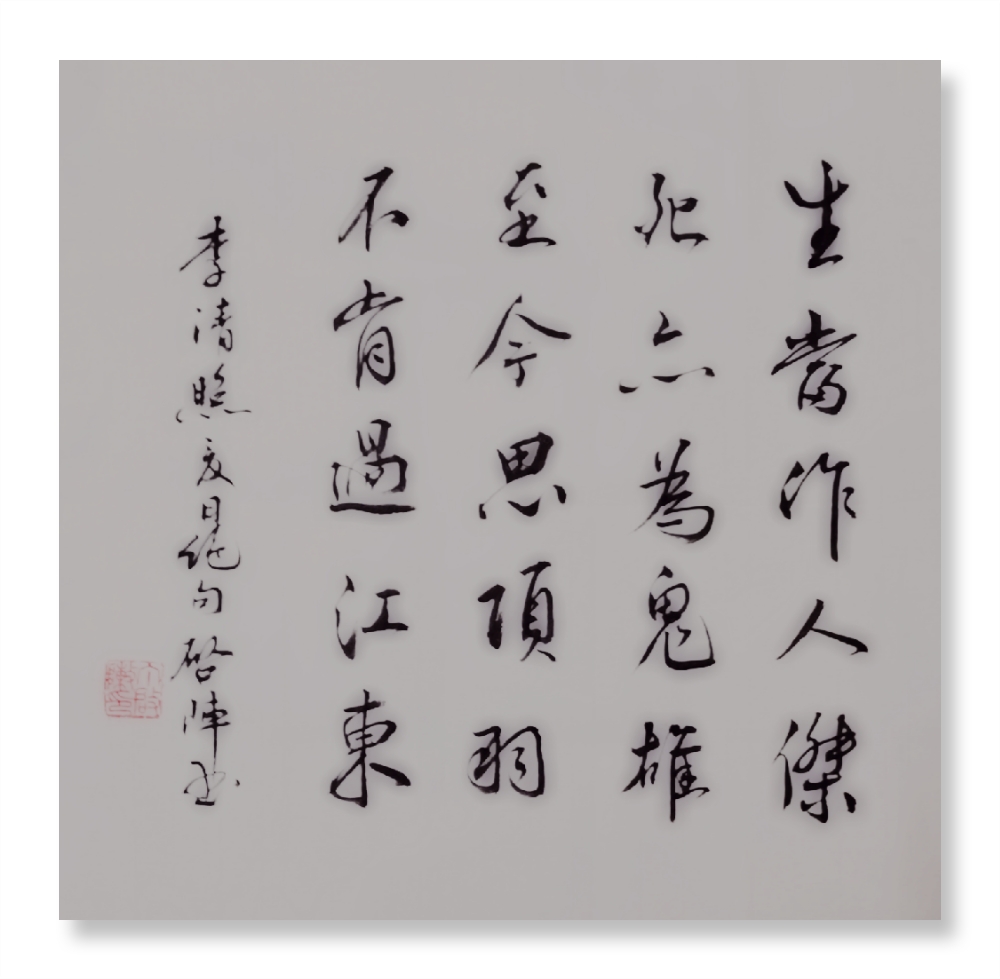 生當作人傑
死亦為鬼雄
至今思項羽
不肯過江東
李清照夏日絕句啓陣书